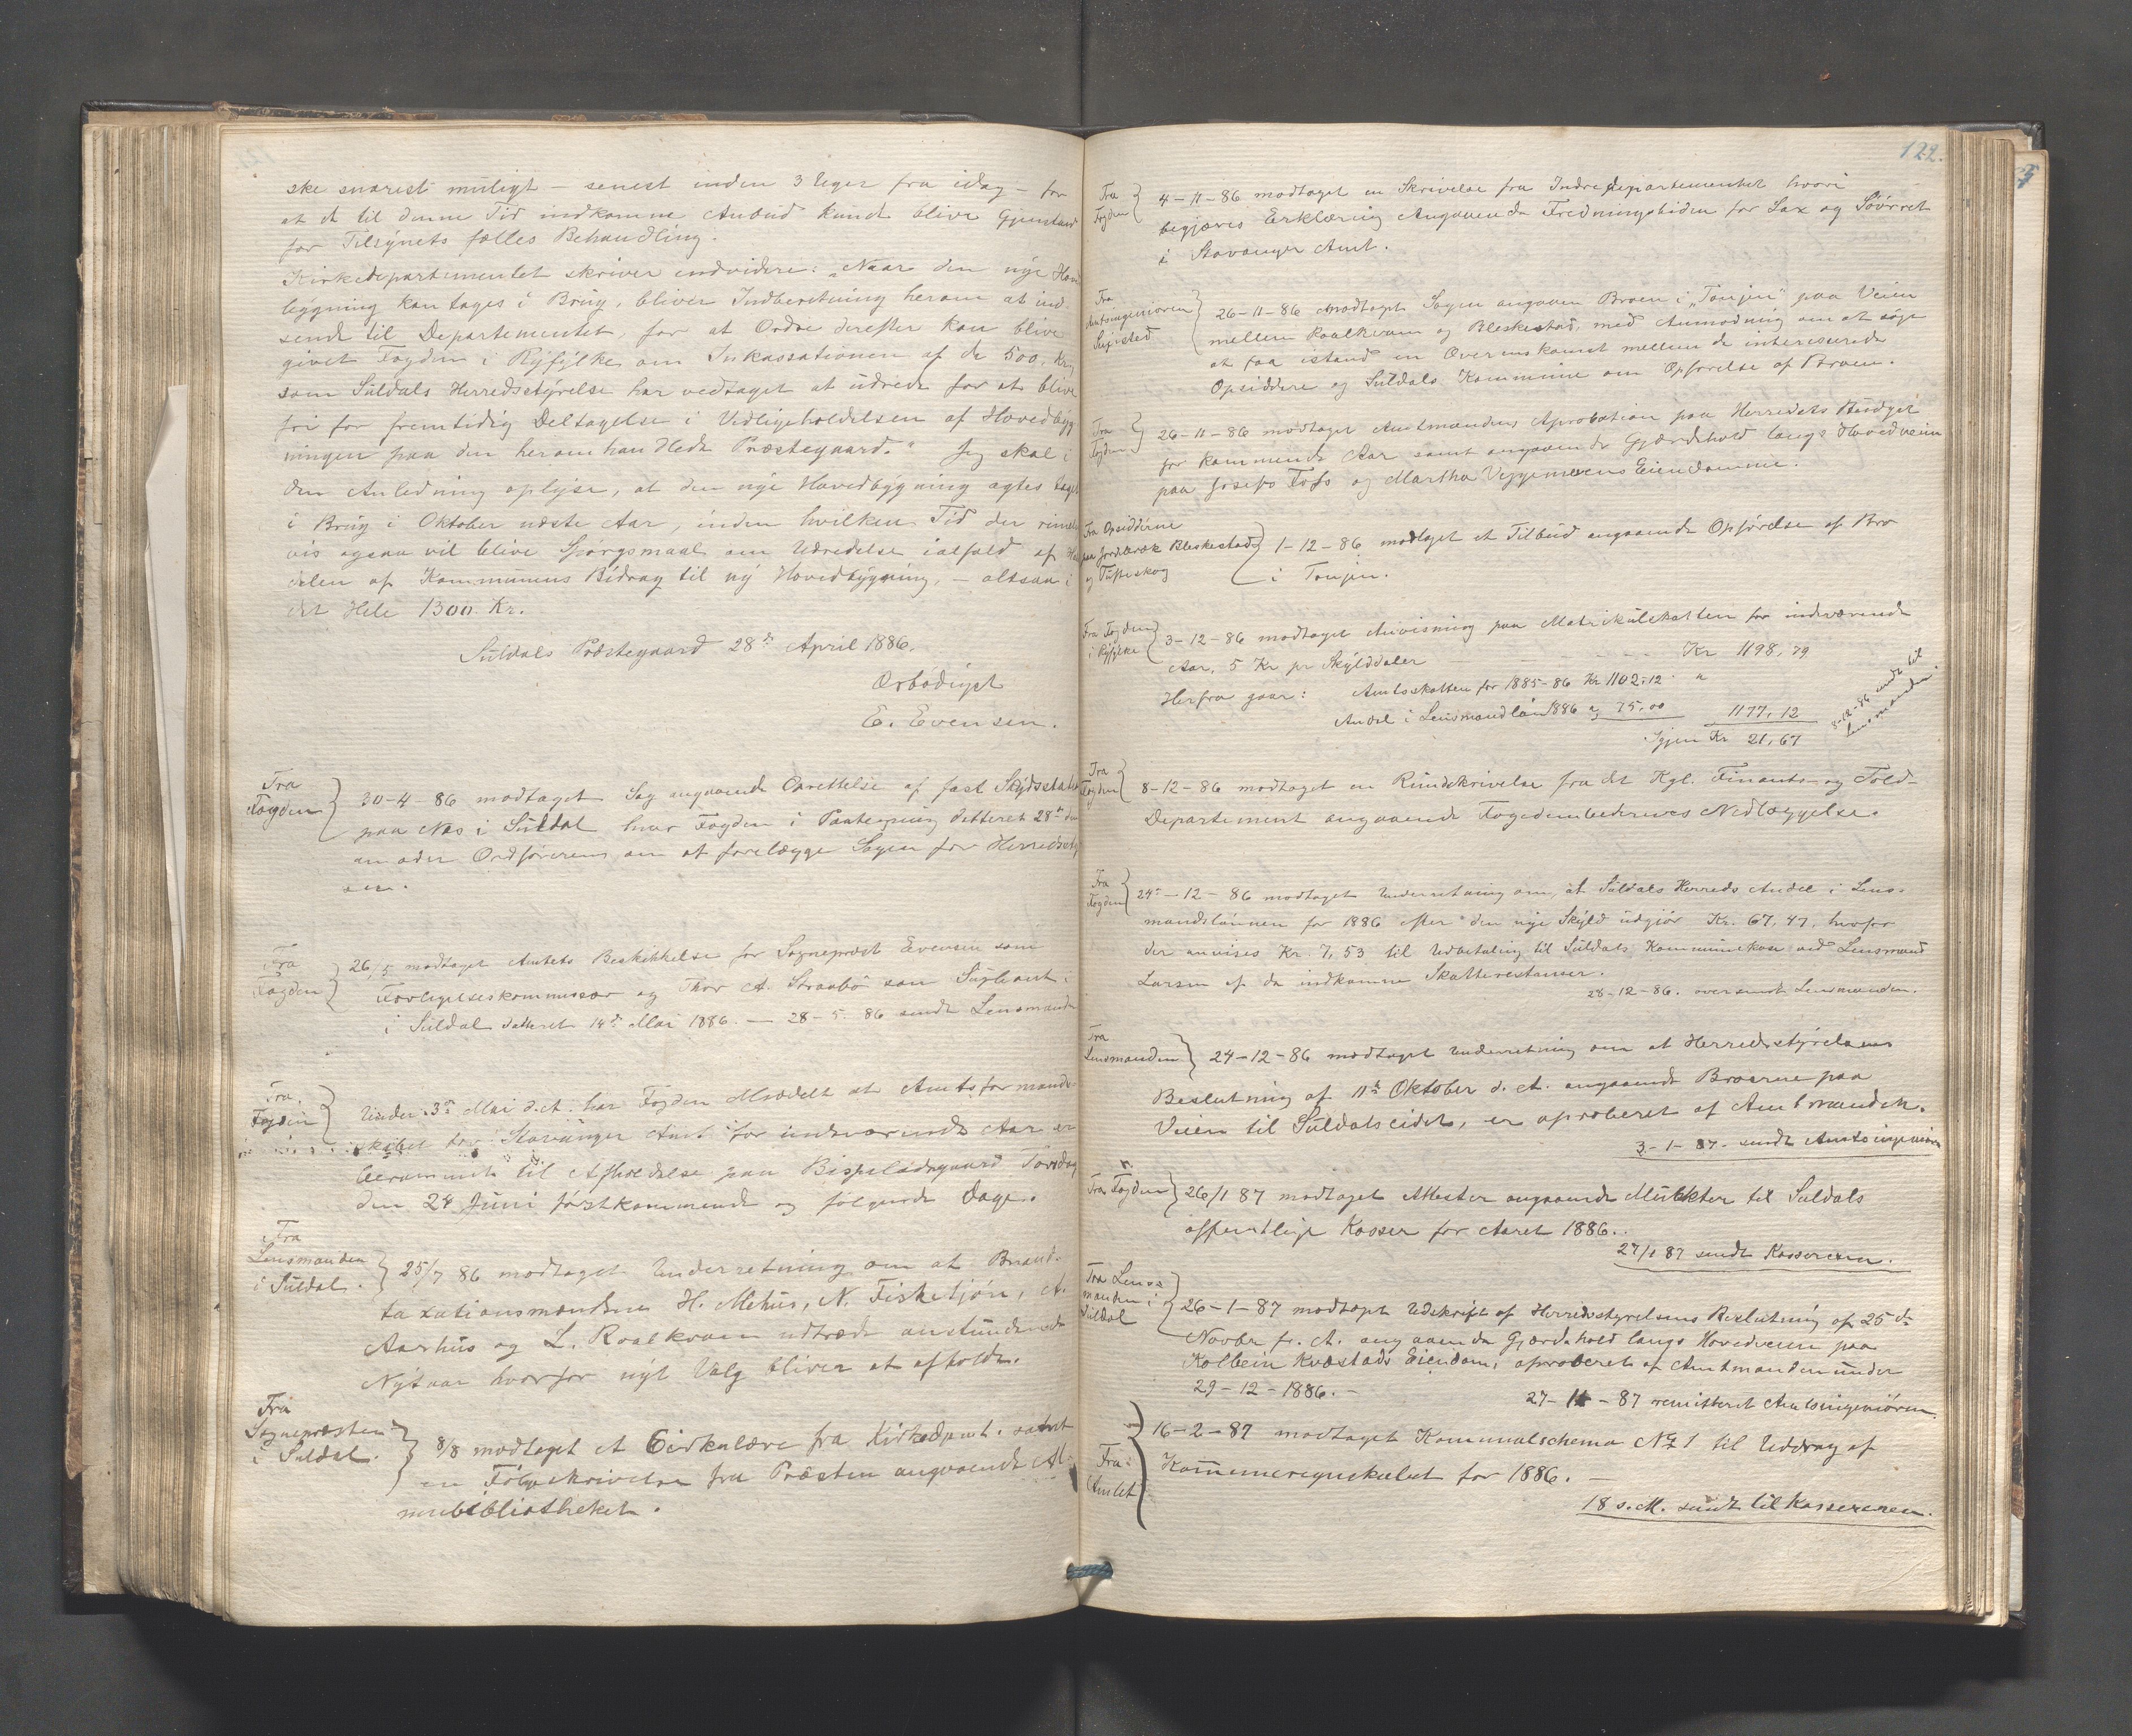 ske snarest muligt – senest inden 3 Uger fra idag – for
at de til denne Tid indkomne Anbud kunde blive Gjenstand
for Tilsynets fælles Behandling.
Kirkedepartementet skriver endvidere: „Naar den nye Hoved
bygning kan tages i Brug, bliver Indberetning herom at ind-
sende til Departementet, for at Ordre derefter kan blive
givet Fogden i Ryfylke om Inkassationen af de 500. Kr,
som Suldals Herredsstyrelse har vedtaget at udrede for at blive
fri for fremtidig Deltagelse i Vedligeholdelsen af Hovedbyg
ningen paa den heromhandlede Præstegaard." Jeg skal i
den Anledning oplyse, at den nye Hovedbygning agtes taget
i Brug i Oktober næste Aar, inden hvilken Tid der rimelig
vis ogsaa vil blive Spørgsmaal om Udredelse ialfald af
delen af Kommunens Bidrag til ny Hovedbygning, – altsaa i
det Hele 1300 Kr.
Suldals Præstegaard 28de April 1886.
Ærbødigst
E. Evensen.
Fra
Fogden
30-4-86 modtaget Sag angaaende Oprettelse af fast Skydsstation
paa Næs i Suldal hvor Fogden i Paategning datteret 28de ds
anmoder Ordføreren om at forelægge Sagen for Herredssty
Fra
Fogden
26/5 modtaget Amtets Beskikkelse for Sogneprest Evensen som
Forligelseskommissær og Thor A. Straabø som Supleant
i Suldal datteret 14de Mai 1886. – 28-5-86 sendt Lensmanden
Fra
Fogden
Under 3de Mai d.A. har Fogden Meddelt at Amtsformand-
skabet for Stavanger Amt for indeværende Aar er
berammet til Afholdelse paa Bispeladegaard Torsdag
den 24 Juni førstkommende og følgende Dage.
Fra
Lensmanden
i Suldal.
25/7 86 modtaget Underretning om at Brand-
taxationsmændene H. Mehus, N. Fisketjøn, A.
Aarhus og L. Roalkvam udtræde anstundende
Nytaar hvorfor nyt Valg bliver at afholde.
Fra
Sognepræsten
i Suldal.
8/8 modtaget et Cirkulære fra Kirkedpart. samt
en Følgeskrivelse fra Præsten angaaende Al-
muebibliotheket.
122.
Fra
Fogden
4-11-86 modtaget en Skrivelse fra Indredepartementet hvori
begjæres Erklæring Angaaende Fredningstiden for Lax og Søørret
i Stavanger Amt.
Fra
Amtsingeniøren
26-11-86 modtaget Sagen angaaen Broen i „Tonjen" paa Veien
mellem Roalkvam og Bleskestad, med Anmodning om at søge
at faa istand en Overenskomst mellem de interesserede
Opsiddere og Suldals Kommune om Opførelse af Broen.
Fra
Fogden
26-11-86 modtaget Amtmandens Aprobation paa Herredets Budget
for kommende Aar samt angaaende Gjærdehold langs Hovedveien
paa Josefs Foss og Martha Veggemoens Eiendomme.
Fra Opsidderne
paa Jordebræk Bleskestad
og
1-12-86 modtaget et Tilbud angaaende Opførelse af Bro
i Tonjen.
Fra Fogden
i Ryfylke
3-12-86 modtaget Anvisning paa Matrikulskatten for indeværende
Aar, 5 Kr pr Skylddaler Kr 1198,79
Herfra gaar: Amtsskatten for 1885-86 Kr 1102,12 "
Andel i Lensmandløn 1886 " 75,00 1177,12
Igjen Kr 21,67
8-12-86 sendt til
Lensmanden.
Fra
Fogden
8-12-86 modtaget en Rundskrivelse fra det Kgl. Finants- og Told-
Departement angaaende Fogedembedernes Nedlæggelse.
Fra
Fogden
24de-12-86 modtaget Underretning om, at Suldals Herreds Andel i Lens-
mandslønnen for 1886 efter den nye Skyld udgjør Kr. 67,47, hvorfor
der anvises Kr. 7,53 til Udbetaling til Suldals Kommunekasse ved Lensmand
Larsen af de indkomne Skatterestanser.
28-12-86. oversendt Lensmanden.
Fra
Lensmanden
24-12-86 modtaget Underretning om at Herredsstyrelsens
Beslutning af 11te Oktober d. A. angaaende Broerne paa
Veien til Suldalseidet, er aproberet af Amtmanden.
3-1-87. sendt Amtsingeniøren
Fra Fogden
26/1 87 modtaget Attester angaaende Mulkter til Suldals
offentlige Kasser for Aaret 1886.
27/1 87 sendt Kassereren.
Fra Lens-
manden i
Suldal
26-1-87 modtaget Udskrift af Herredsstyrelsens Beslutning af 25de
Novbr f. A. angaaende Gjærdehold langs Hovedveien paa
Kolbein Kvæstads Eiendom, aproberet af Amtmanden under
29-12-1886. –
27-1-87 remitteret Amtsingeniøren.
Fra
Amtet
16-2-87 modtaget Kommunalschema No 1 til Uddrag af
Kommuneregnskabet for 1886. –
18 s.M. sendt til Kassereren.